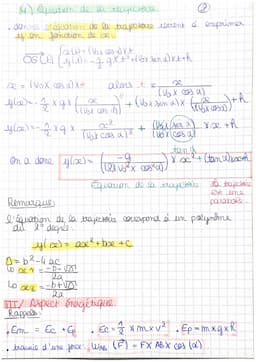 4) Équation de la trajectoire ②
donner l'équation de la trajectoire revient à exprimer
y en fonction de x.
OG(t) { x(t) = (V₀x cos α) x t
y(t) = -½ x g x t² + (V₀ x sin α) x t + h
x = (V₀x cos α) x t alors t = x / (V₀x cos α)
y(x) = -½ x g x (x / (V₀x cos α))² + (V₀x sin α) x (x / (V₀x cos α)) + h
y(x) = -½ x g x x² / (V₀x cos α)² + (V₀x sin α) / (V₀x cos α) x x + h
tan α
On a donc y(x) = (-g / (2 V₀² x cos² α)) x x² + (tan α) x x + h
Équation de la trajectoire
la trajectoire
est une
parabole.
Remarque:
l'équation de la trajectoire correspond à un polynôme
du 2nd degré.
y(x) = ax² + bx + c
Δ = b² - 4ac
x₁ = (-b - √Δ) / 2a
x₂ = (-b + √Δ) / 2a
III/ Aspect énergétique
Rappels:
Em = Ec + Ep . Ec = ½ x m x v² . Ep = m x g x h
travail d'une force: W_AB (F) = F x AB x cos (α)